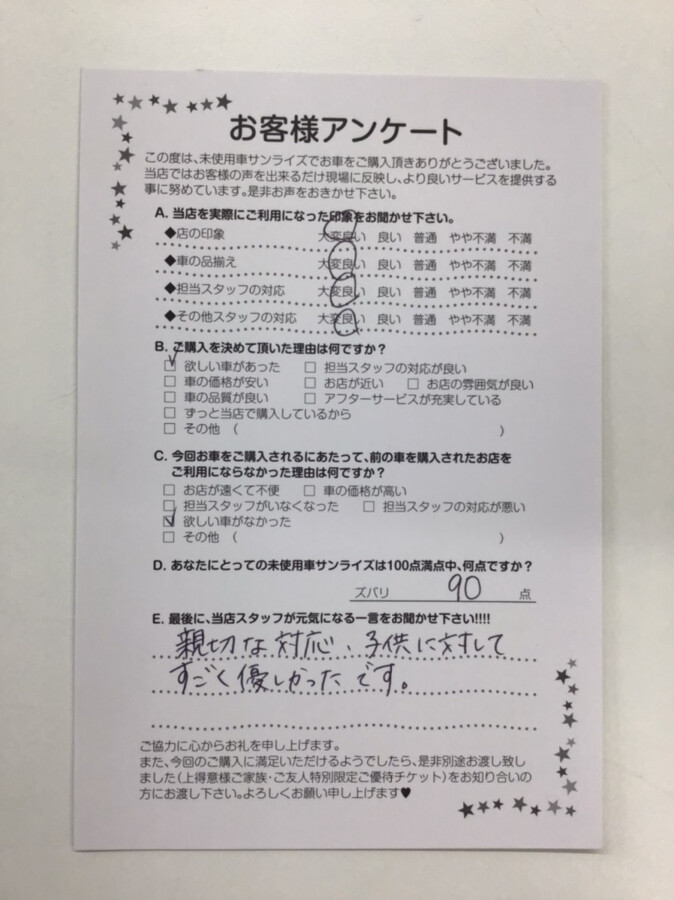 お客様アンケート
この度は、未使用車サンライズでお車をご購入頂きありがとうございました。
当店ではお客様の声を出来るだけ現場に反映し、より良いサービスを提供する
事に努めています。是非お声をおきかせ下さい。
A. 当店を実際にご利用になった印象をお聞かせ下さい。
◆店の印象 大変良い 良い 普通 やや不満 不満
◆車の品揃え 大変良い 良い 普通 やや不満 不満
◆担当スタッフの対応 大変良い 良い 普通 やや不満 不満
◆その他スタッフの対応 大変良い 良い 普通 やや不満 不満
B. ご購入を決めて頂いた理由は何ですか?
☑ 欲しい車があった □ 担当スタッフの対応が良い
□ 車の価格が安い □ お店が近い □ お店の雰囲気が良い
□ 車の品質が良い □ アフターサービスが充実している
□ ずっと当店で購入しているから
□ その他 ( )
C. 今回お車をご購入されるにあたって、前の車を購入されたお店を
ご利用にならなかった理由は何ですか?
□ お店が遠くて不便 □ 車の価格が高い
□ 担当スタッフがいなくなった □ 担当スタッフの対応が悪い
☑ 欲しい車がなかった
□ その他 ( )
D. あなたにとっての未使用車サンライズは100点満点中、何点ですか?
ズバリ 90 点
E. 最後に、当店スタッフが元気になる一言をお聞かせ下さい!!!!
親切な対応、子供に対して
すごく優しかったです。
ご協力に心からお礼を申し上げます。
また、今回のご購入に満足いただけるようでしたら、是非別途お渡し致し
ました(上得意様ご家族・ご友人特別限定ご優待チケット)をお知り合いの
方にお渡し下さい。よろしくお願い申し上げます♥